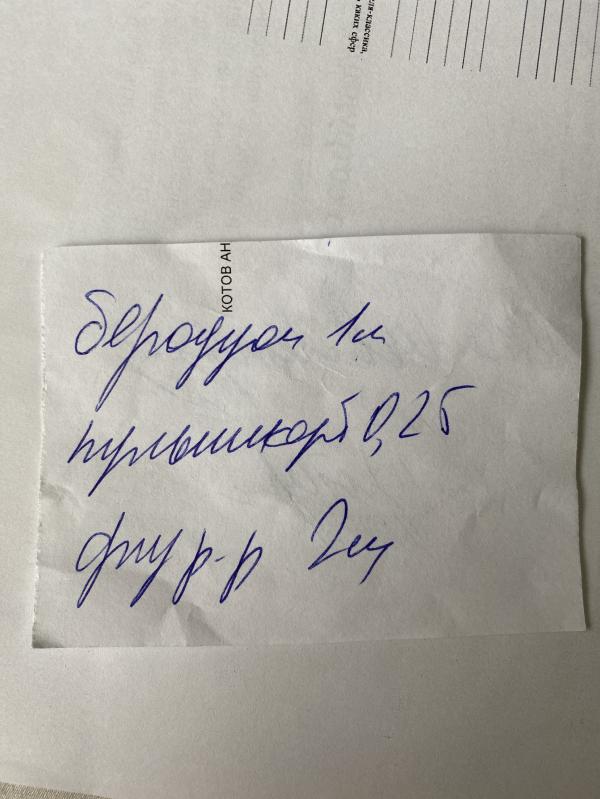 ля-классика,
в каких сфер
КОТОВ АН
беродуал 1 мл
пульмикорт 0,25
физ р-р 2 мл